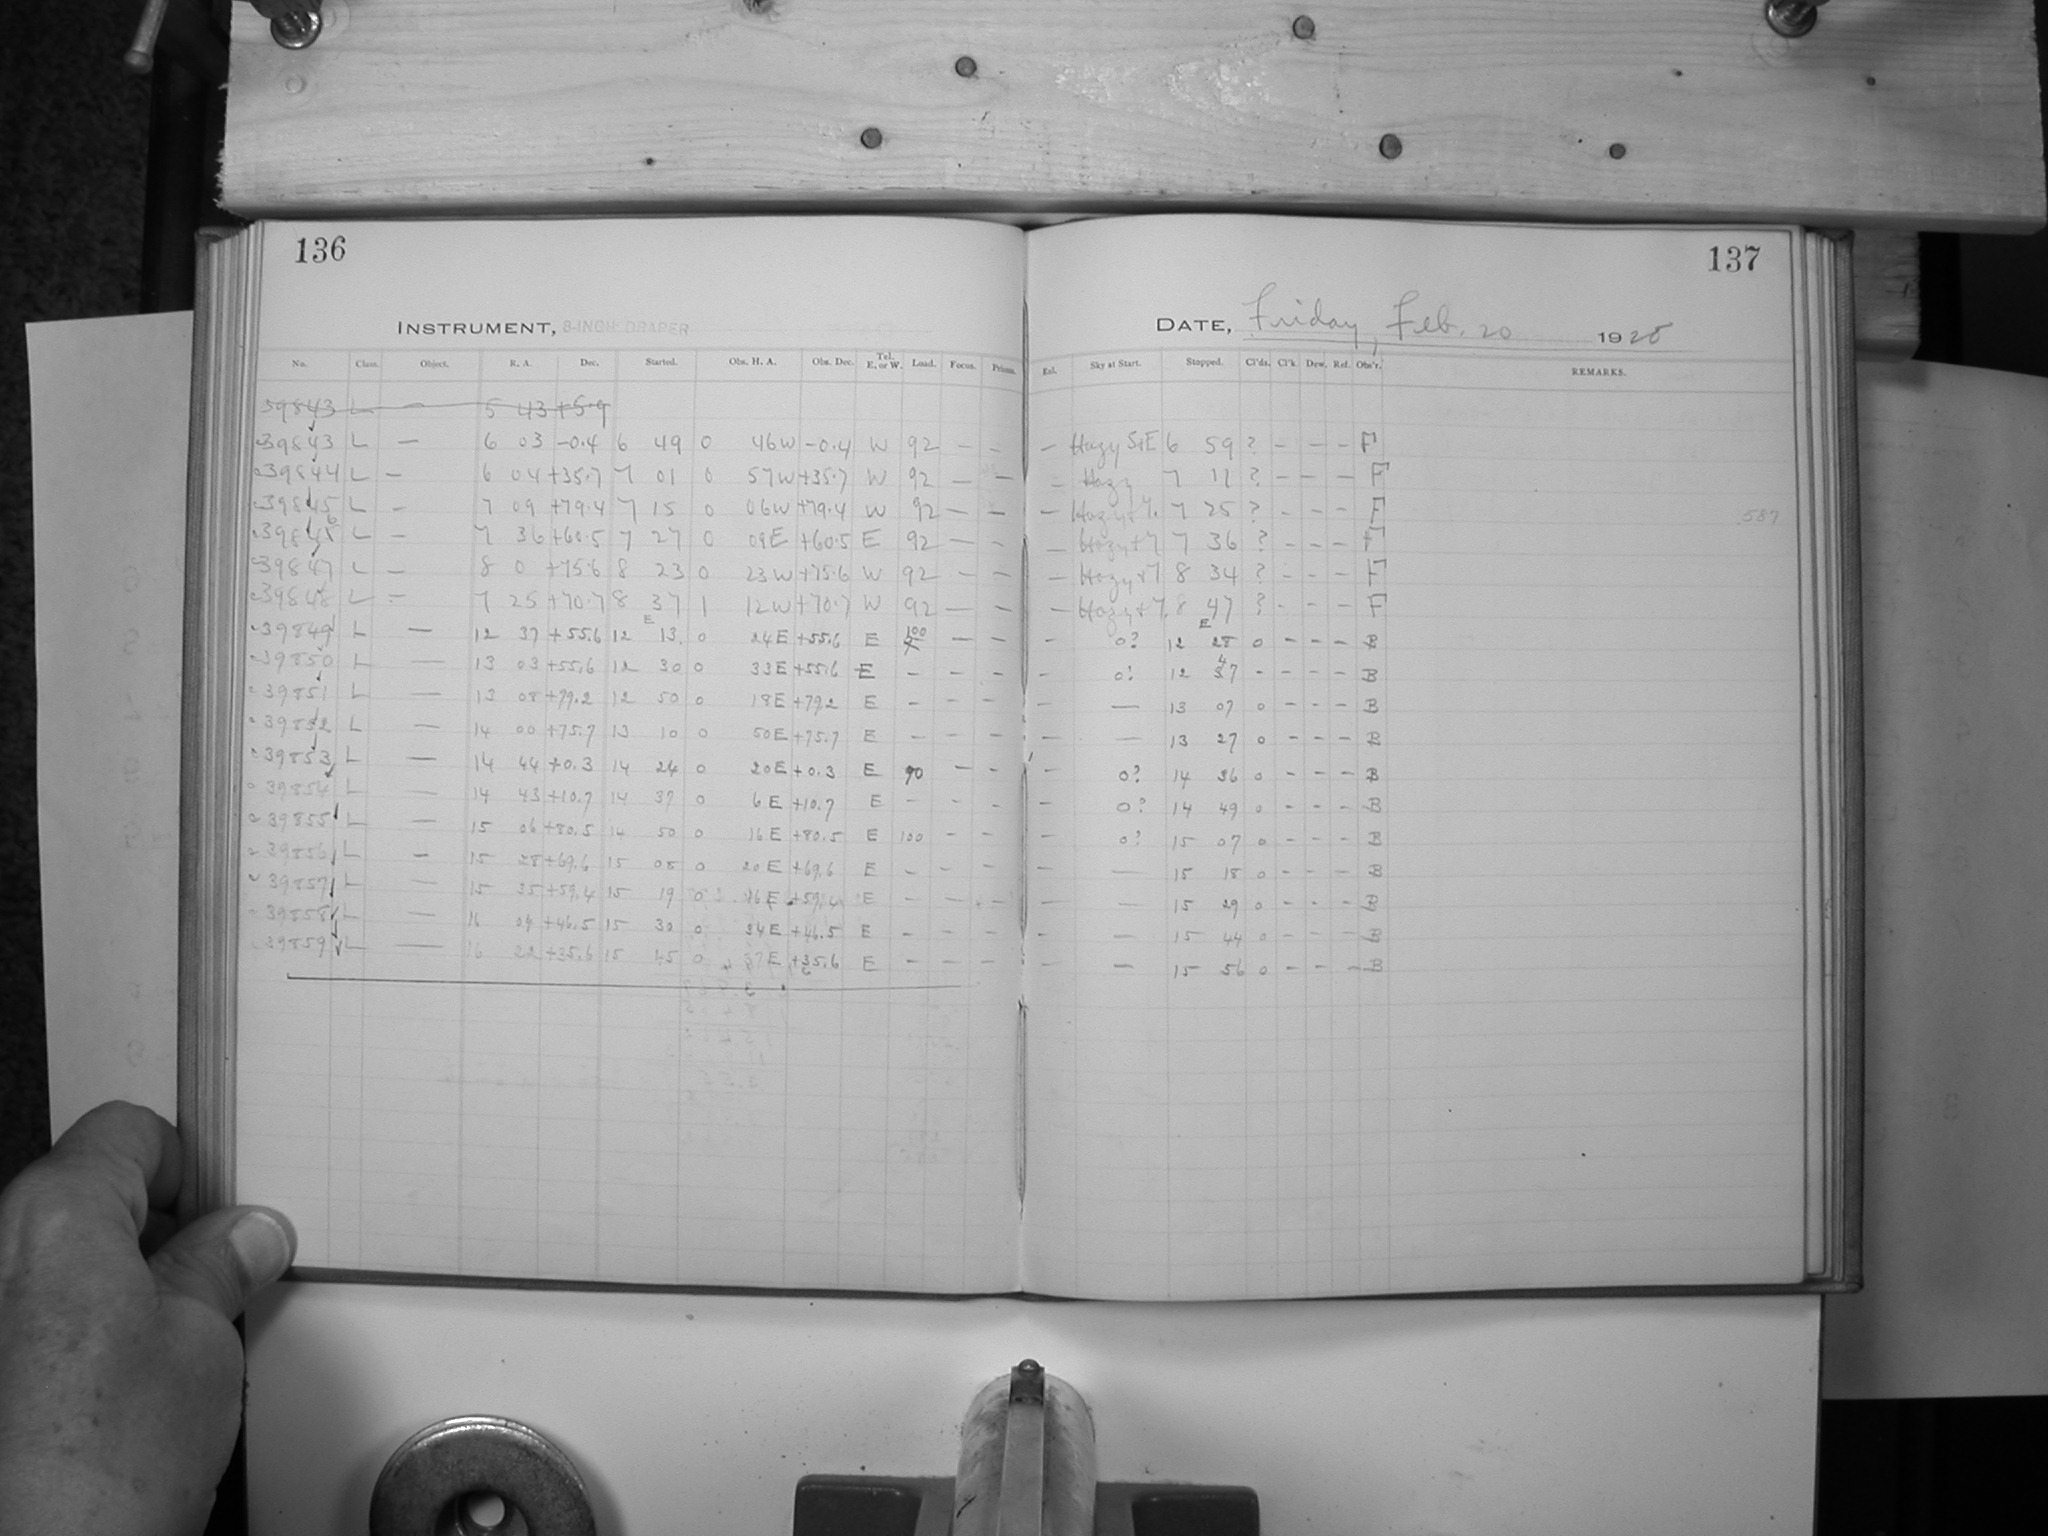 136
INSTRUMENT, 8-INCH DRAPER
No. Class. Object. R. A. Dec. Started. Obs. H. A. Obs. Dec. Tel. E. or W. Load. Focus. Prisms.
39843 L — 5 43 +5.9
39843 L — 6 03 -0.4 6 49 0 46W -0.4 W 92 — —
39844 L — 6 04 +35.7 7 01 0 57W +35.7 W 92 — —
39845 L — 7 09 +79.4 7 15 0 06W +79.4 W 92 — —
39846 L — 7 36 +60.5 7 27 0 09E +60.5 E 92 — —
39847 L — 8 0 +75.6 8 23 0 23W +75.6 W 92 — —
39848 L — 7 25 +70.7 8 37 1 12W +70.7 W 92 — —
39849 L — 12 37 +55.6 12 E 13 0 24E +55.6 E 100 — —
39850 L — 13 03 +55.6 12 30 0 33E +55.6 E - - -
39851 L — 13 08 +79.2 12 50 0 18E +79.2 E - - -
39852 L — 14 00 +75.7 13 10 0 50E +75.7 E - - -
39853 L — 14 44 +0.3 14 24 0 20E +0.3 E 90 - -
39854 L — 14 43 +10.7 14 37 0 6E +10.7 E - - -
39855 L — 15 06 +80.5 14 50 0 16E +80.5 E 100 - -
39856 L — 15 28 +69.6 15 08 0 20E +69.6 E - - -
39857 L — 15 35 +59.4 15 19 0 16E +59.4 E - - -
39858 L — 16 04 +46.5 15 30 0 34E +46.5 E - - -
39859 L — 16 22 +35.6 15 45 0 37E +35.6 E - - -
137
DATE, Friday, Feb. 20 1925
Exl. Sky at Start. Stopped. Cl'ds. Cl'k Dew. Ref. Obs'r. REMARKS.
— Hazy S+E 6 59 ? - - - F
— Hazy 7 11 ? - - - F
— Hazy 7 25 ? - - - F 587
— Hazy 7 36 ? - - - F
— Hazy 8 34 ? - - - F
— Hazy 8 47 ? - - - F
- 0? 12 E 28 0 - - - B
- 0? 12 47 - - - - B
- — 13 07 0 - - - B
- — 13 27 0 - - - B
- 0? 14 36 0 - - - B
- 0? 14 49 0 - - - B
- 0? 15 07 0 - - - B
- — 15 18 0 - - - B
- — 15 29 0 - - - B
- — 15 44 0 - - - B
- — 15 56 0 - - - B